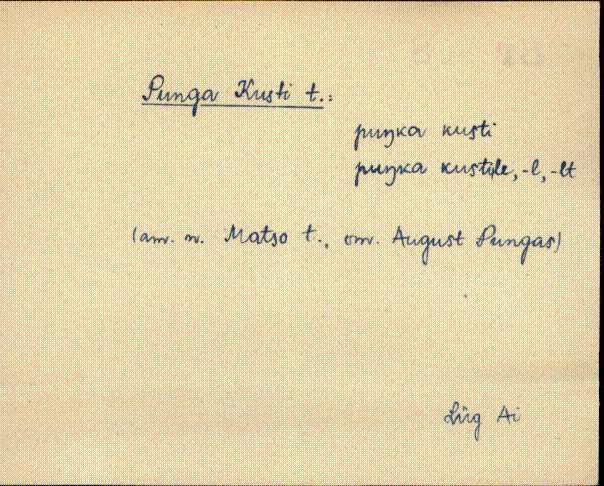 Punga Kusti t.:
puŋka kusti
puŋka kustile, -l, -lt
(am. n. Matso t., om. August Pungas)
Lüg Ai